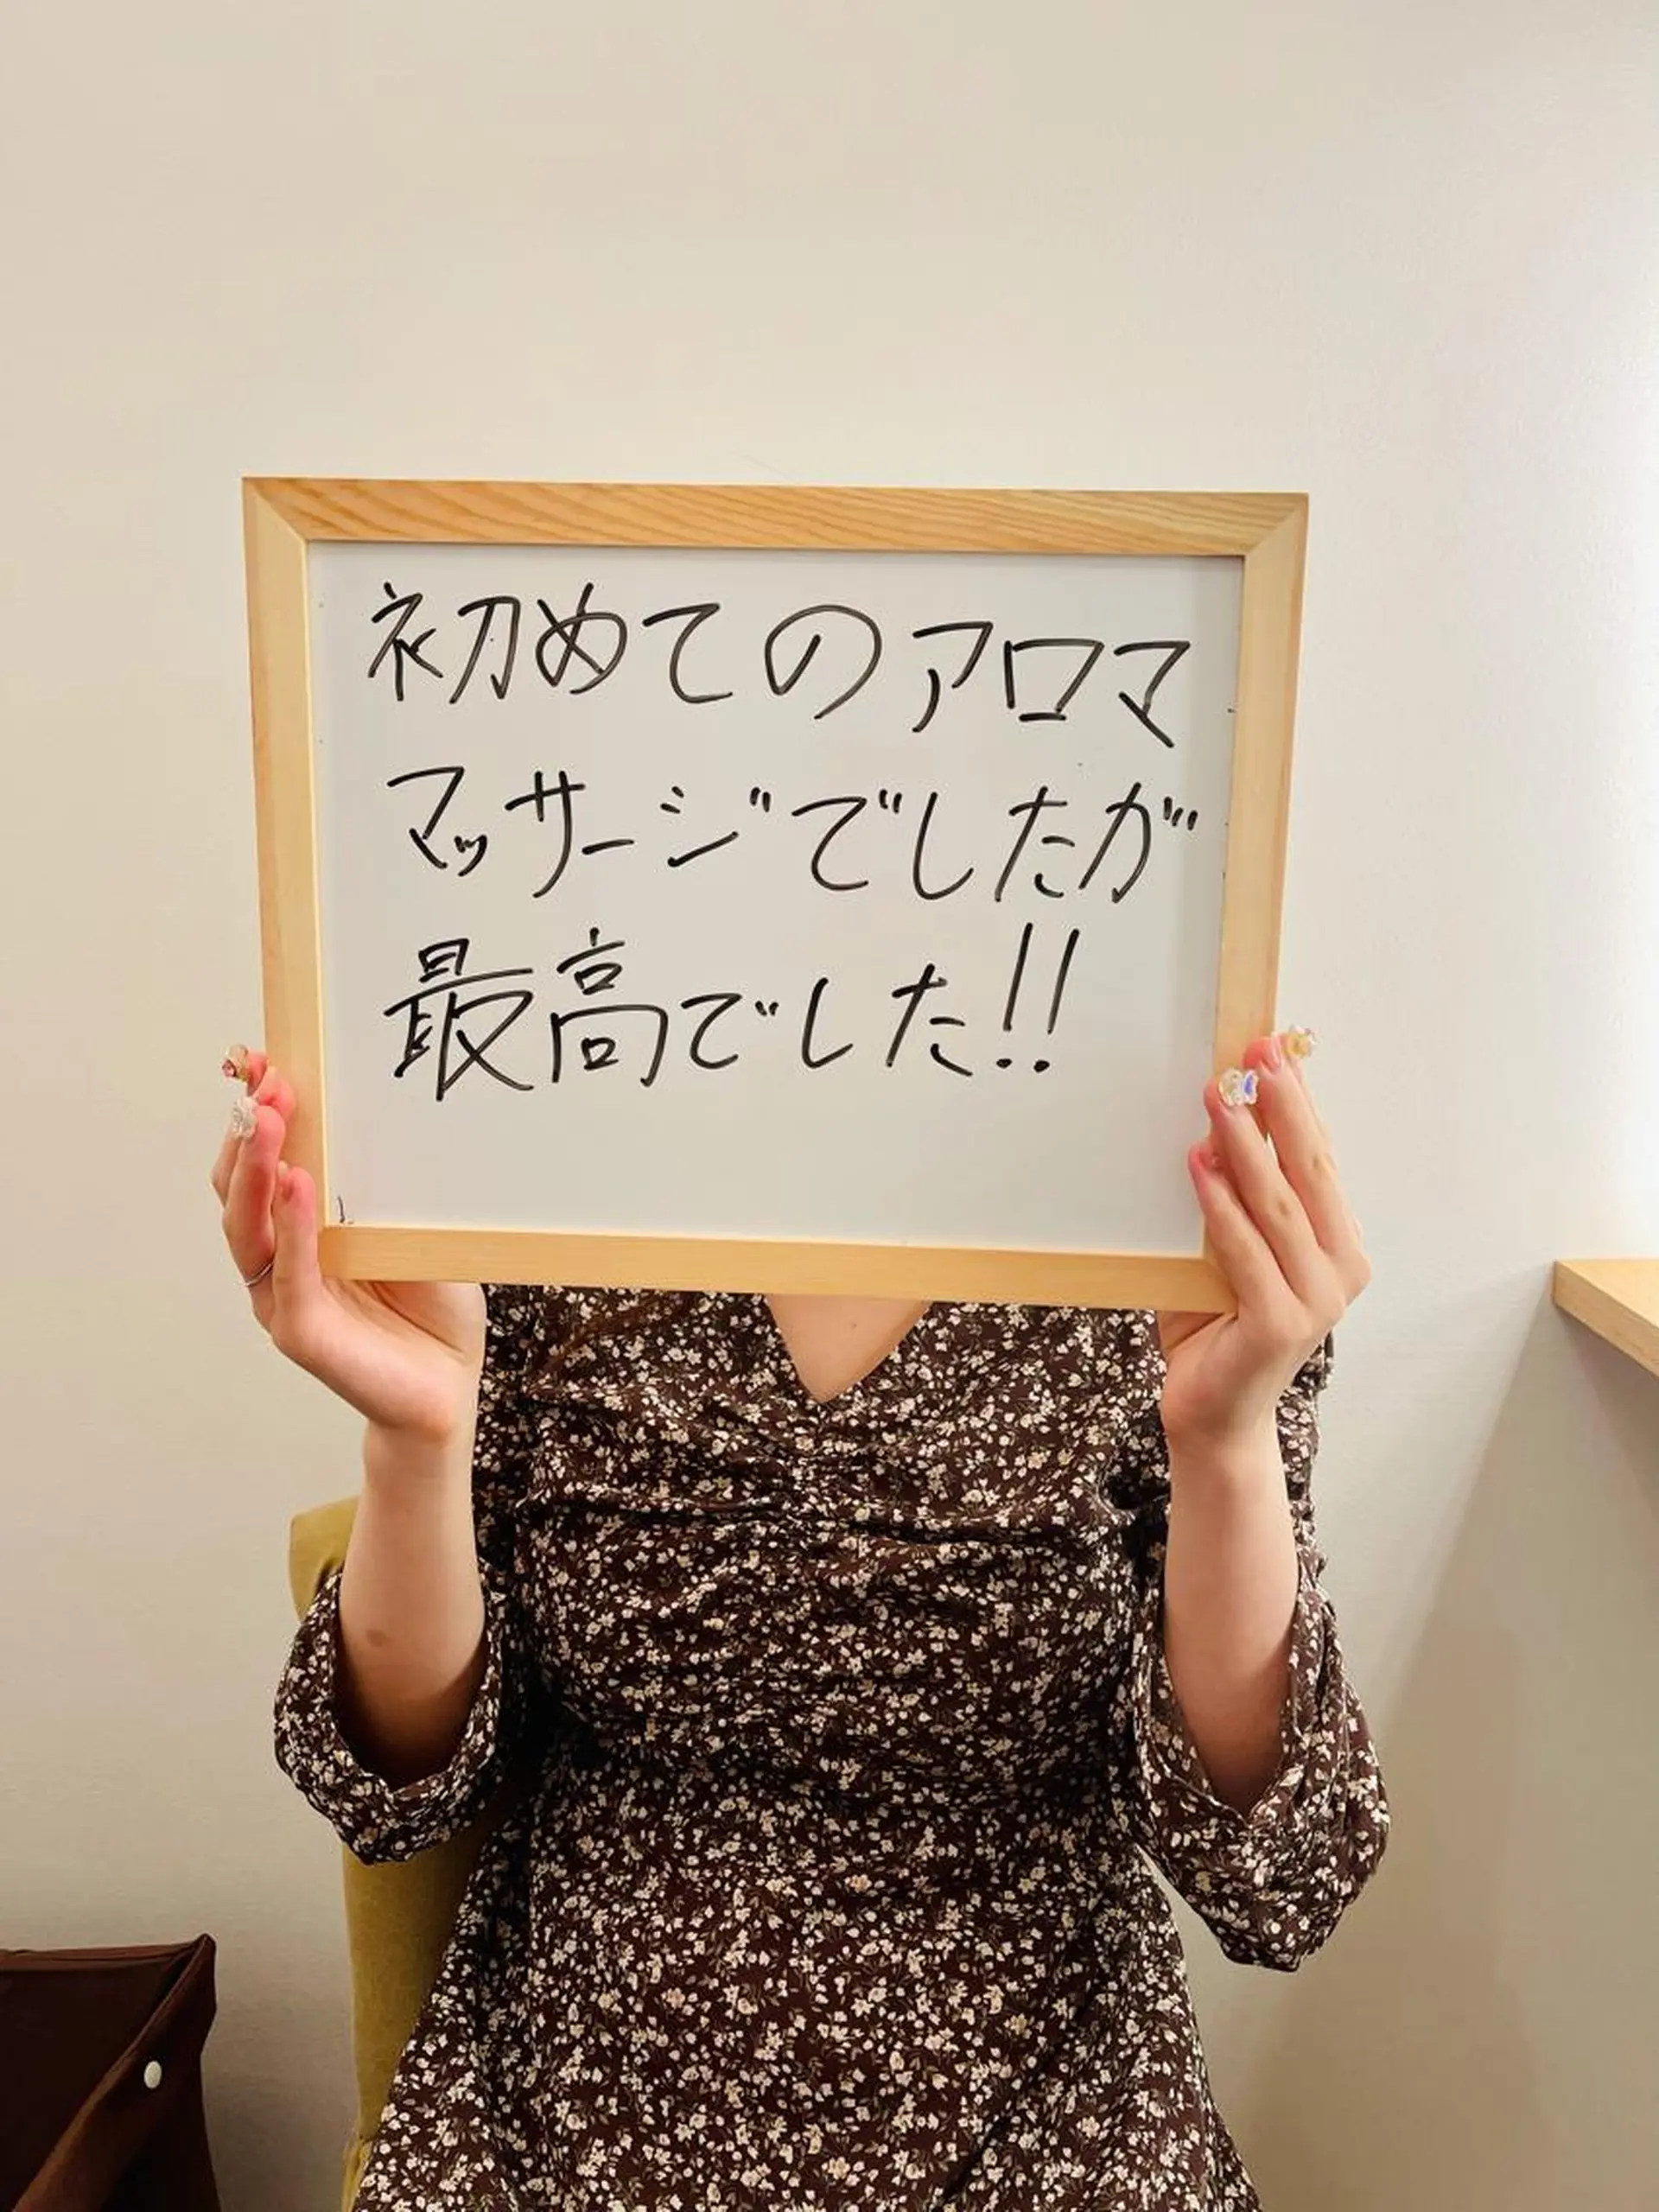 初めてのアロマ
マッサージでしたが
最高でした!!